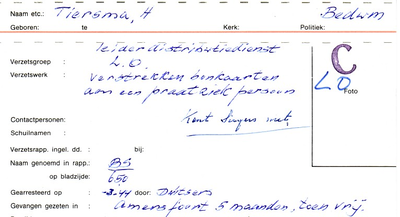 Naam etc.: Tiersma, H Bedum
Geboren: te Kerk: Politiek:
leider distributiedienst
Verzetsgroep : L.O.
Verzetswerk : verstrekken bonkaarten
aan een praatziek persoon
C
LO
Foto
Contactpersonen:
Kent Siegers niet
Schuilnaam :
Verzetsrapp. ingel. dd. : bij:
Naam genoemd in rapp.: BS
op bladzijde: 650
Gearresteerd op : -3-44 door: Duitsers
Gevangen gezeten in : Amersfoort 5 maanden, toen vrij.